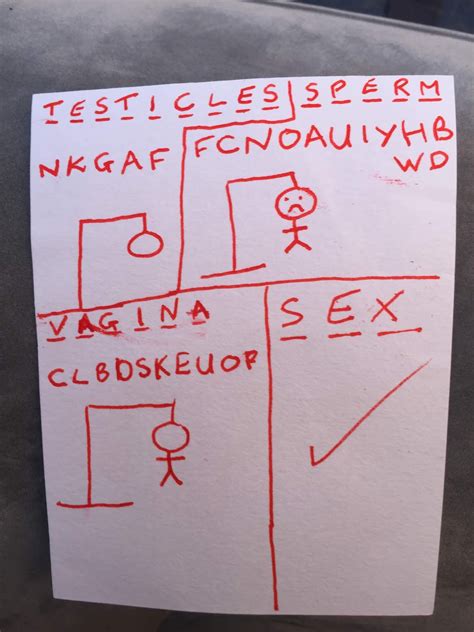 TESTICLES
NKGAF
SPERM
FCNOAUIYHB
WD
VAGINA
CLBDSKEUOF
SEX